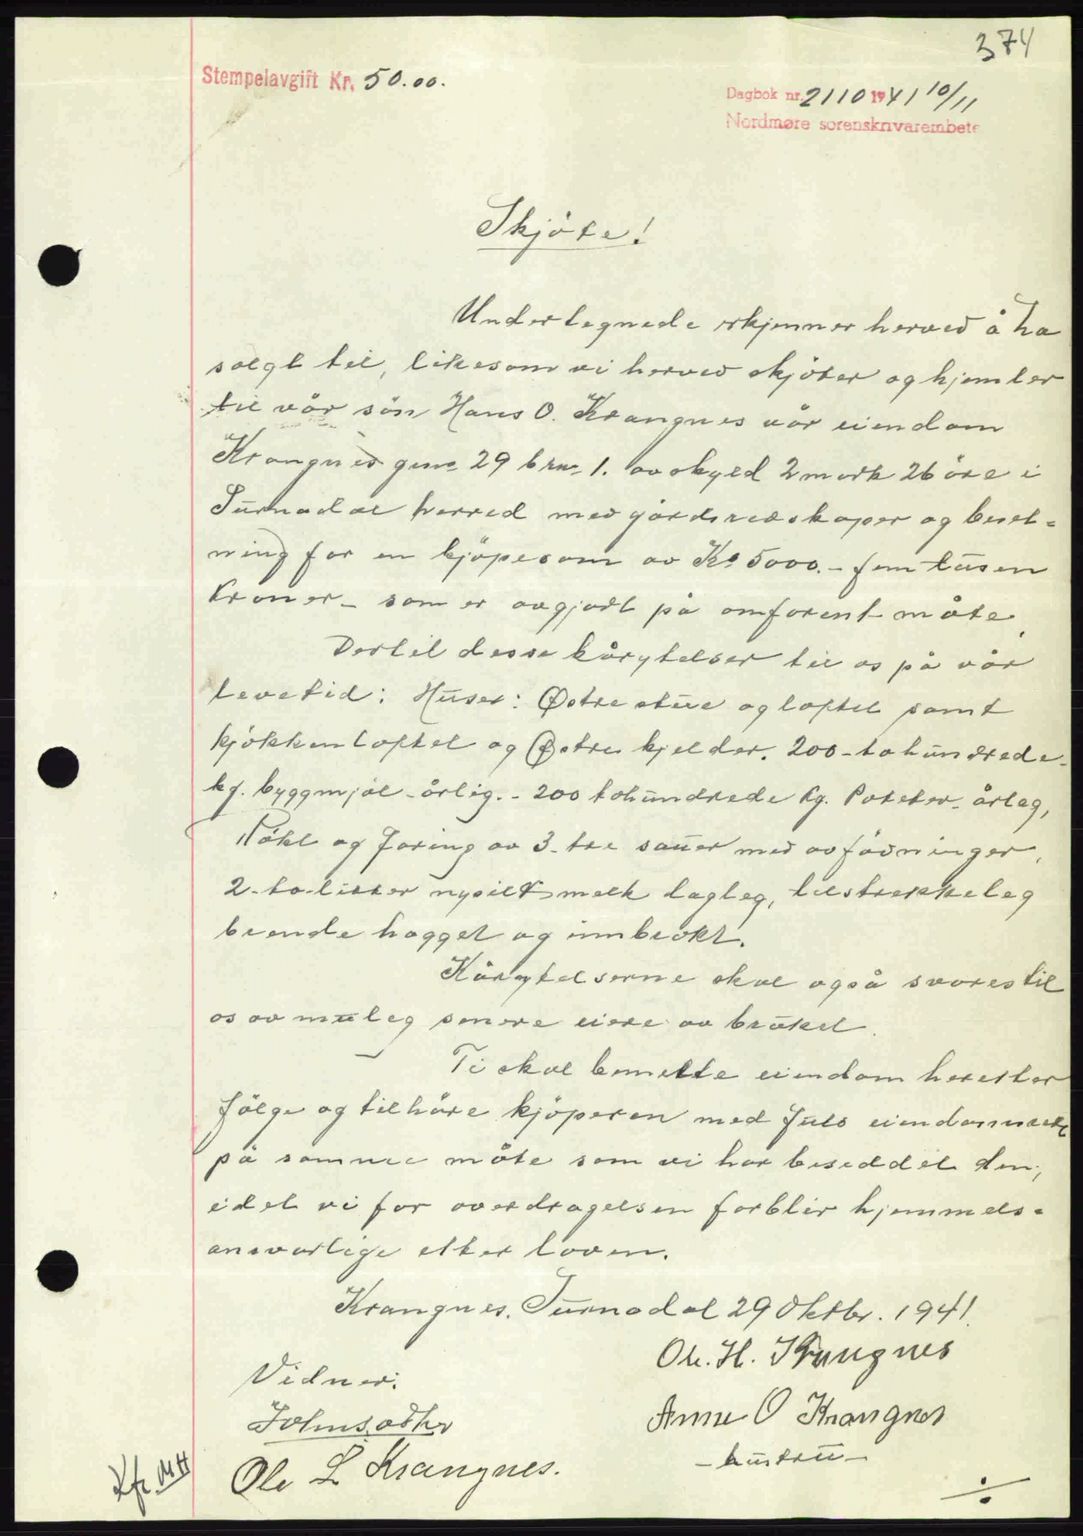 374
Stempelavgift Kr. 50.00.
Dagbok nr. 2110 1941 10/11
Nordmøre sorenskrivarembete
Skjöte!
Undertegnede erkjenner herved å ha
solgt til, likesom vi herved skjöter og hjemler
til vår sön Hans O. Krangnes vår eiendom
Krangnes gnr. 29 brnr 1. av skyld 2 mark 26 öre i
Surnadal herred med gårdsredskaper og beset-
ning for en kjöpesom av Kr 5000.- fem tusen
kroner - som er avgjort på omforent måte.
Dertil desse kårytelser til os på vår
levetid: Huser: Østre stue og loftet samt
kjökkenloftet og Østre kjelder. 200 - tohundrede -
kg. byggmjöl - årlig. - 200 tohundrede kg. Poteter - årleg,
Röht og foring av 3 - tre sauer med avfödninger,
2 - to - litter nysilt melk dagleg, tilstrekkeleg
brende hogget og innbrakt.
Kårytelserne skal også svares til
os av muleg senere eiere av bruket.
Ti skal bemelte eiendom herefter
fölge og tilhöre kjöperen med full eiendomsrett
på samme måte som vi har beseddet den,
idet vi for overdragelsen forblir hjemmels-
ansvarlige etter loven.
Krangnes. Surnadal 29 Oktbr. 1941.
Ole. H. Krangnes
Vidner:
Anne O Krangnes
- hustru -
Ole L Krangnes.
Kfr. MH